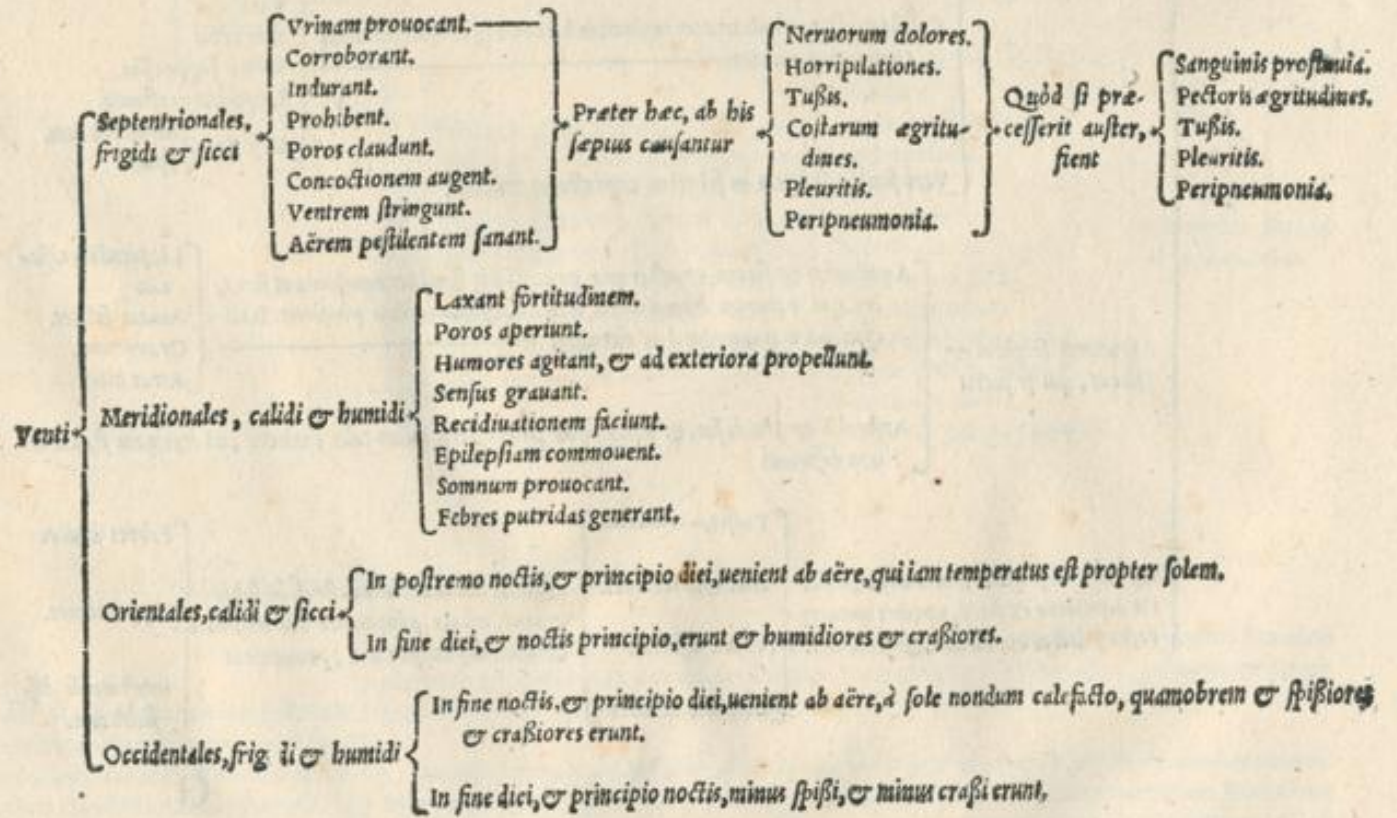 Venti
Septentrionales,
frigidi & sicci
Vrinam prouocant.
Corroborant.
Indurant.
Prohibent.
Poros claudunt.
Concoctionem augent.
Ventrem stringunt.
Aërem pestilentem sanant.
Præter hæc, ab his
sæpius causantur
Neruorum dolores.
Horripilationes.
Tußis.
Costarum ægritu-
dines.
Pleuritis.
Peripneumonia.
Quòd si præ-
cesserit auster,
fient
Sanguinis profluuia.
Pectoris ægritudines.
Tußis.
Pleuritis.
Peripneumonia.
Meridionales, calidi & humidi
Laxant fortitudinem.
Poros aperiunt.
Humores agitant, & ad exteriora propellunt.
Sensus grauant.
Recidiuationem faciunt.
Epilepsiam commouent.
Somnum prouocant.
Febres putridas generant.
Orientales, calidi & sicci
In postremo noctis, & principio diei, uenient ab aëre, qui iam temperatus est propter solem.
In fine diei, & noctis principio, erunt & humidiores & craßiores.
Occidentales, frig di & humidi
In fine noctis, & principio diei, uenient ab aëre, à sole nondum calefacto, quamobrem & spißiores
& craßiores erunt.
In fine diei, & principio noctis, minus spißi, & minus craßi erunt.